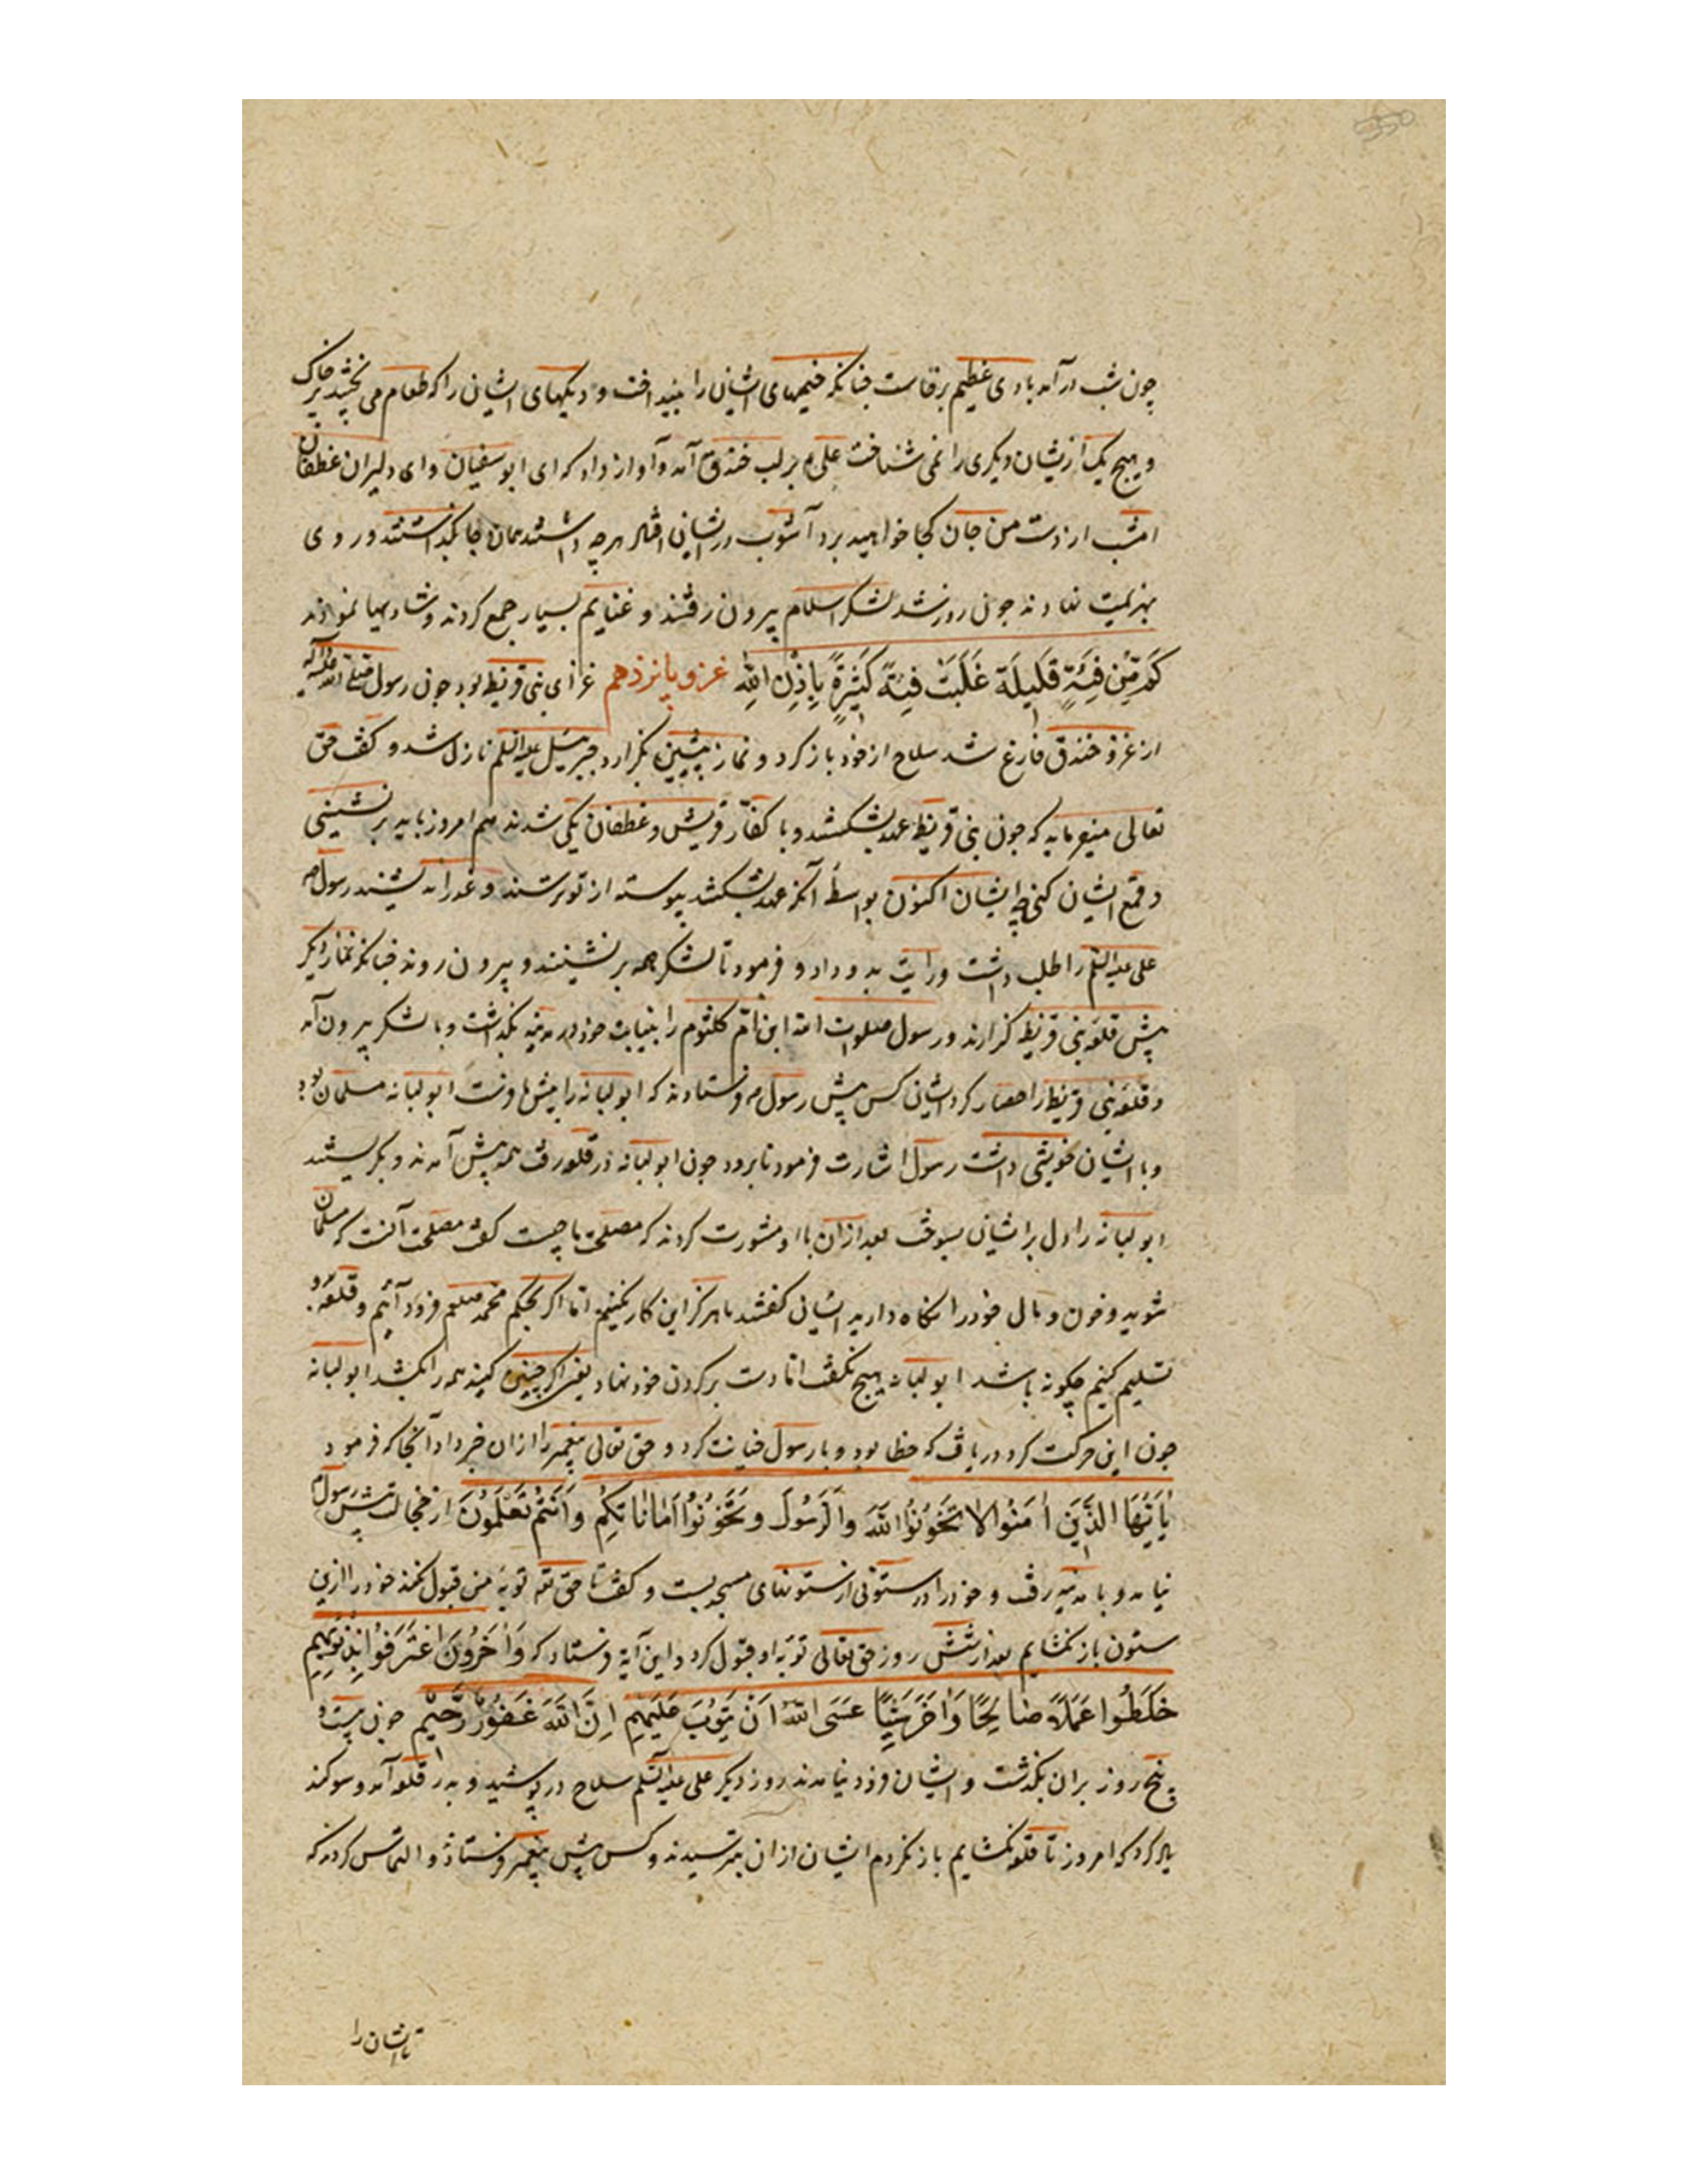 چون شب درآمد بادی عظیم برخاست چنانکه خیمهای ایشان را بینداخت و دیکهای ایشان را که طعام می پختند پر خاک
و هیچ یک ازیشان دیکری را نمی شناخت علی م بر لب خندق آمد و آواز داد که ای ابوسفیان و ای دلیران غطفان
امشب از دست من جان کجا خواهید برد آشوب در ایشان افتاد هرچه داشتند همان جا بگذاشتند و روی
بهزیمت نهادند چون روز شد لشکر اسلام بیرون رفتند و غنایم بسیار جمع کردند و شادیها نمودند
كَم مِّن فِئَةٍ قَلِيلَة غَلَبَت فِئَةً كَثِيرَةً بِإِذْنِ اللّٰهِ غزو پانزدهم غزای بنی قریظه بود چون رسول
از غزو خندق فارغ شد سلاح از خود باز کرد و نماز پیشین بگزارد جبرئیل علیه السلم نازل شد و کفت حق
تعالی میفرماید که چون بنی قریظه عهد بشکستند و با کفار قریش و غطفان یکی شدند هم امروز باید برنشینی
و قمع ایشان کنی ایشان اکنون بواسطه آنکه عهد بشکستند پیوسته از تو ترسند رسول ص
علی علیه السلم را طلب داشت و رایت بدو داد و فرمود تا لشکر همه برنشینند و بیرون روند چنانکه نماز دیکر
پیش قلعه بنی قریظه گزارند و رسول صلوات الله ابن ام کلثوم را بنیابت خود در مدینه بگذاشت و با لشکر بیرون آمد
و قلعه بنی قریظه را حصار کرد ایشان کس پیش رسول م فرستادند که ابو لبانه را پیش ما فرست ابو لبانه مسلمان بود
و با ایشان خویشی داشت رسول اشارت فرمود تا برود چون ابو لبانه در قلعه رفت همه پیش آمدند و بگریستند
ابو لبانه را دل بر ایشان بسوخت بعد ازان با او مشورت کردند که مصلحت ما چیست کفت مصلحت آنست که مسلمان
شوید و خون و مال خود را نکاه دارید ایشان کفتند ما هرکز این کار نکنیم اما اکر بحکم محمد صلعم فرود آئیم و قلعه بدو
تسلیم کنیم چکونه باشد ابو لبانه هیچ نکفت اما دست بر کردن خود نهاد یعنی اکر چنین کنید همه را بکشد ابو لبانه
چون این حرکت کرد دریافت که خطا بود و با رسول خیانت کرد و حق تعالی پیغمبر را ازان خبر داد آنجا که فرمود
يٰا أَيُّهَا الَّذِينَ اٰمَنُوا لا تَخُونُوا اللّٰهَ وَالرَّسُولَ وَتَخُونُوا أَمٰانٰاتِكُم وَأَنتُم تَعْلَمُونَ از خجالت پیش رسول
نیامد و با مدینه رفت و خود را در ستونی از ستونهای مسجد بست و کفت تا حق تع توبه من قبول نکند خود را ازین
ستون باز نکشایم بعد از شش روز حق تعالی توبه او قبول کرد و این آیة فرستاد که وَاٰخَرُونَ اعْتَرَفُوا بِذُنُوبِهِم
خَلَطُوا عَمَلاً صٰالِحًا وَاٰخَرَ سَيِّئًا عَسَى اللّٰهُ أَن يَتُوبَ عَلَيْهِم إِنَّ اللّٰهَ غَفُورٌ رَّحِيمٌ چون بیست و
پنج روز بران بگذشت و ایشان فرود نیامدند روز دیکر علی علیه السلم سلاح در پوشید و بدر قلعه آمد و سوکند
یاد کرد که امروز تا قلعه نکشایم باز نکردم ایشان ازان بترسیدند و کس پیش پیغمبر فرستادند و التماس کردند که
تا ایشان را